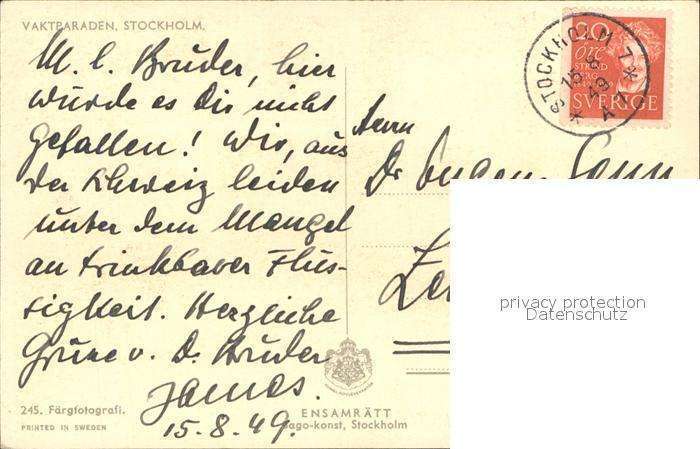 VAKTPARADEN, STOCKHOLM.
M. l. Bruder, hier
würde es Dir nicht
gefallen! Wir, aus
der Schweiz leiden
unter dem Mangel
an trinkbarer Flüs-
sigkeit. Herzliche
Grüsse v. D. Bruder
James.
15.8.49.
245. Färgfotografi.
PRINTED IN SWEDEN
ENSAMRÄTT
ago-konst, Stockholm
STOCKHOLM 7
15 8
49
* A 1 *
20
öre
STRIND
BERG
SVERIGE
Herrn
Dr Eugen
privacy protection
Datenschutz